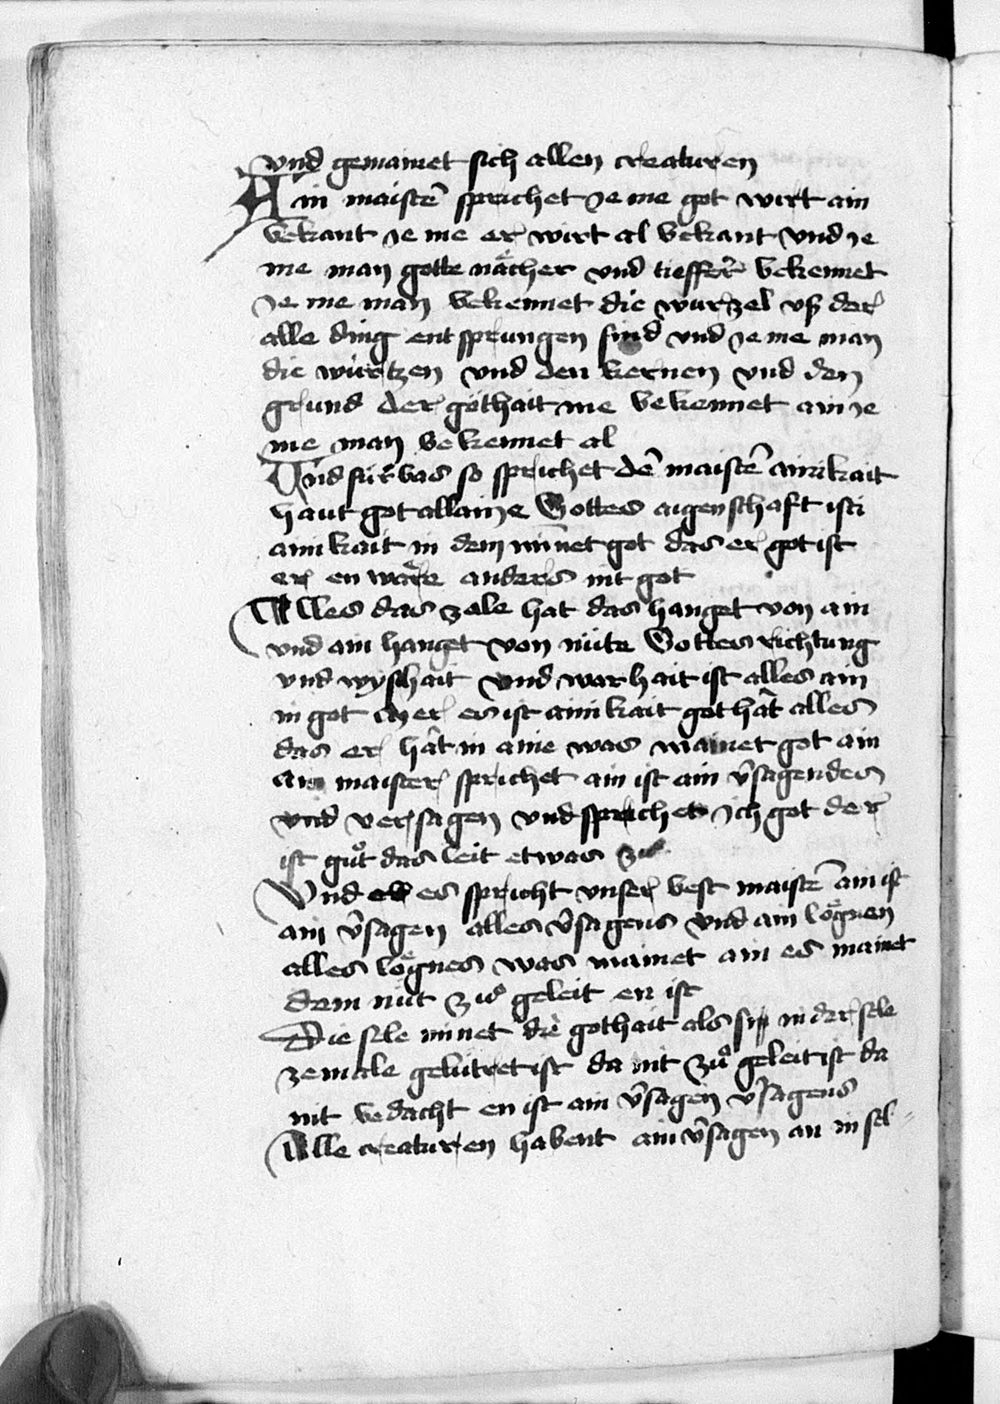 vnd gemainet sich allen creaturen
Ain maist̃ sprichet ie me got wirt ain
bekant ie me er wirt al bekant vnd ie
me man gotte nächer vnd tieffer bekennet
ie me man bekennet die wurzel vß der
alle ding entsprungen sind vnd ie me man
die würtzen vnd den kernen vnd den
grund der gothait me bekennet ain ie
me man bekennet al
Vnd fürbas so sprichet dẽ maistẽ ainikait
haut got allaine Gottes aigenschaft ist
ainikait in dem nimet got das er got ist
er en wäre anders nit got
Alles das zale hat das hanget von ain
vnd ain hanget von nüte Gottes richtung
vnd wyshait vnd warhait ist alles ain
in got mer es ist ainikait got hât alles
das er hât in aine was mainet got ain
ain maister sprichet ain ist ain v̄sagendes
vnd versagen vnd sprichet ich got der
ist gůt das leit etwas zů
Vnd es spricht vnser best maistẽ ain ist
ain v̄sagen alles v̄sagens vnd ain lögnen
alles lögnes was mainet ain es mainet
dem nüt zů geleit en ist
Die sele nimet die gothait als si in der sele
zemale gelütret ist da nit zů geleit ist da
nit bedacht en ist ain v̄sagen v̄sagens
Alle creaturen habent ain v̄sagen an in sel